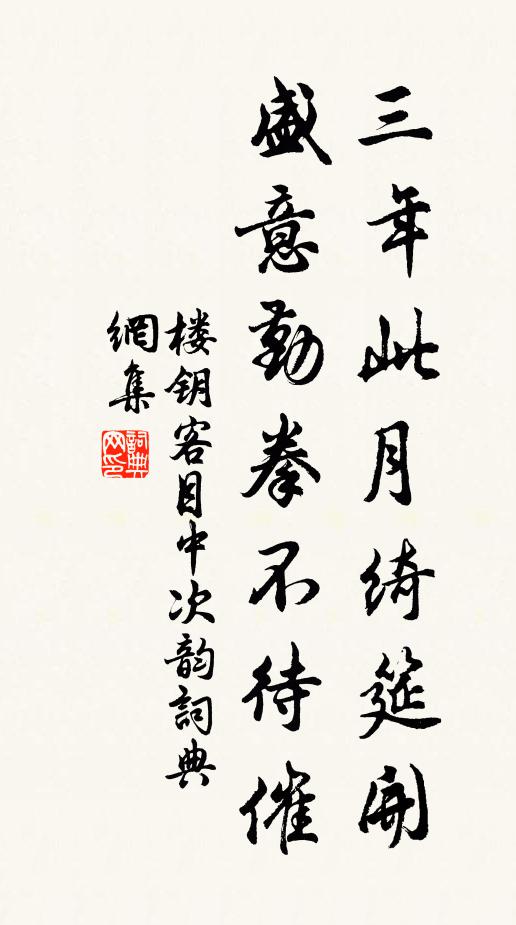 三年此月绮筵開
盛意勤拳不待催
楼钥客目中次韵詞典
網集
詞典网印